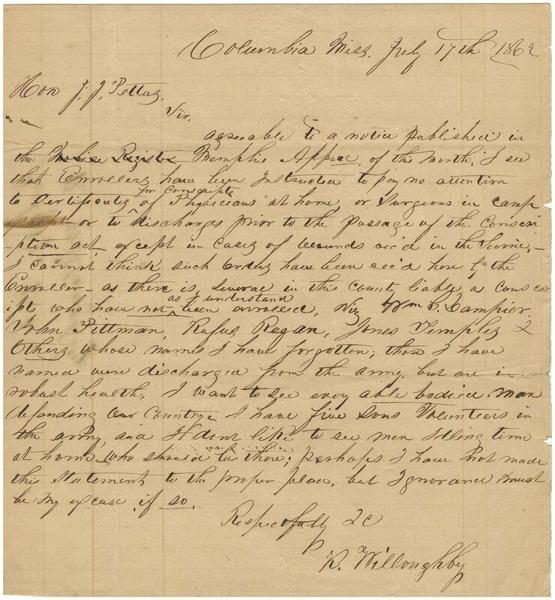 Columbia Miss. July 17th 1862
Hon J. J. Pettus,
Sir,
agreeable to a notice published in
the Memphis Appeal, of the month, I see
that Enrollers have been Instructed to pay no attention
for Conscripts
to Certificates of Physicians at home, or Surgeons in camp
or to discharges prior to the Passage of the Conscri-
-ption act, except in cases of wounds rec'd in the Service,
I cannot think such orders have been rec'd here by the
Enroller - as there is several in this County liable as consc
as I understand
ipts who have not been enrolled, Viz Wm L. Lampier,
John Pittman, Rufus Regan, Jones Temples &
Others whose names I have forgotten; those I have
named were discharged from the army, but are in
robust health, I want to see every able bodied man
defending our Country I have five Sons Volunteers in
the army, and I dont like to see men Idling time
at home who should be there; perhaps I have not made
the Statement to the proper place, but Ignorance must
be my excuse if so.
Respecfully &c
R. Willoughby